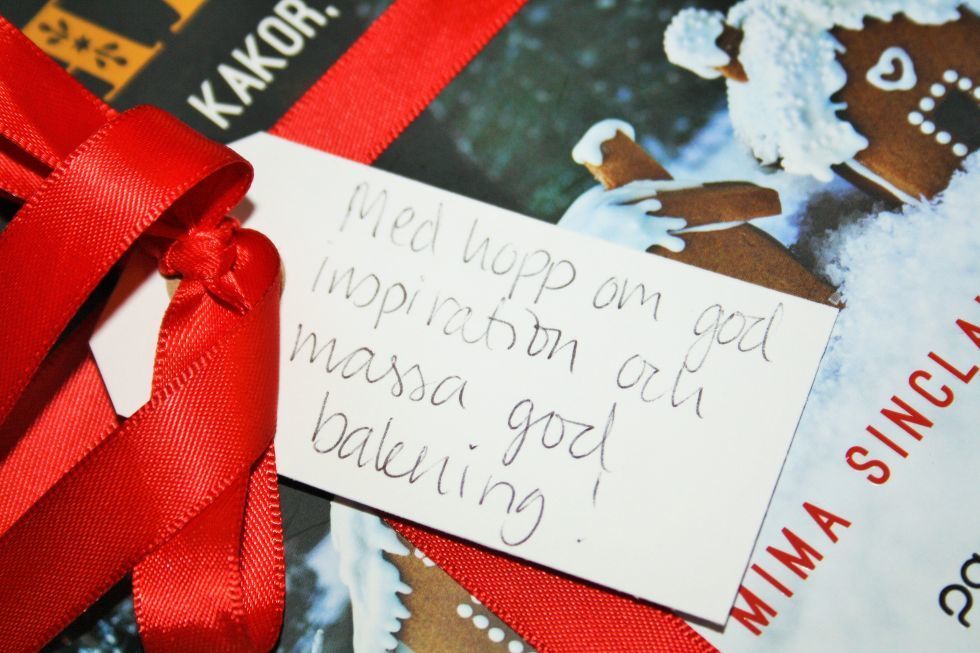 KAKOR.
Med hopp om god
inspiration och
massa god
bakning!
MIMA SINCLA
pa